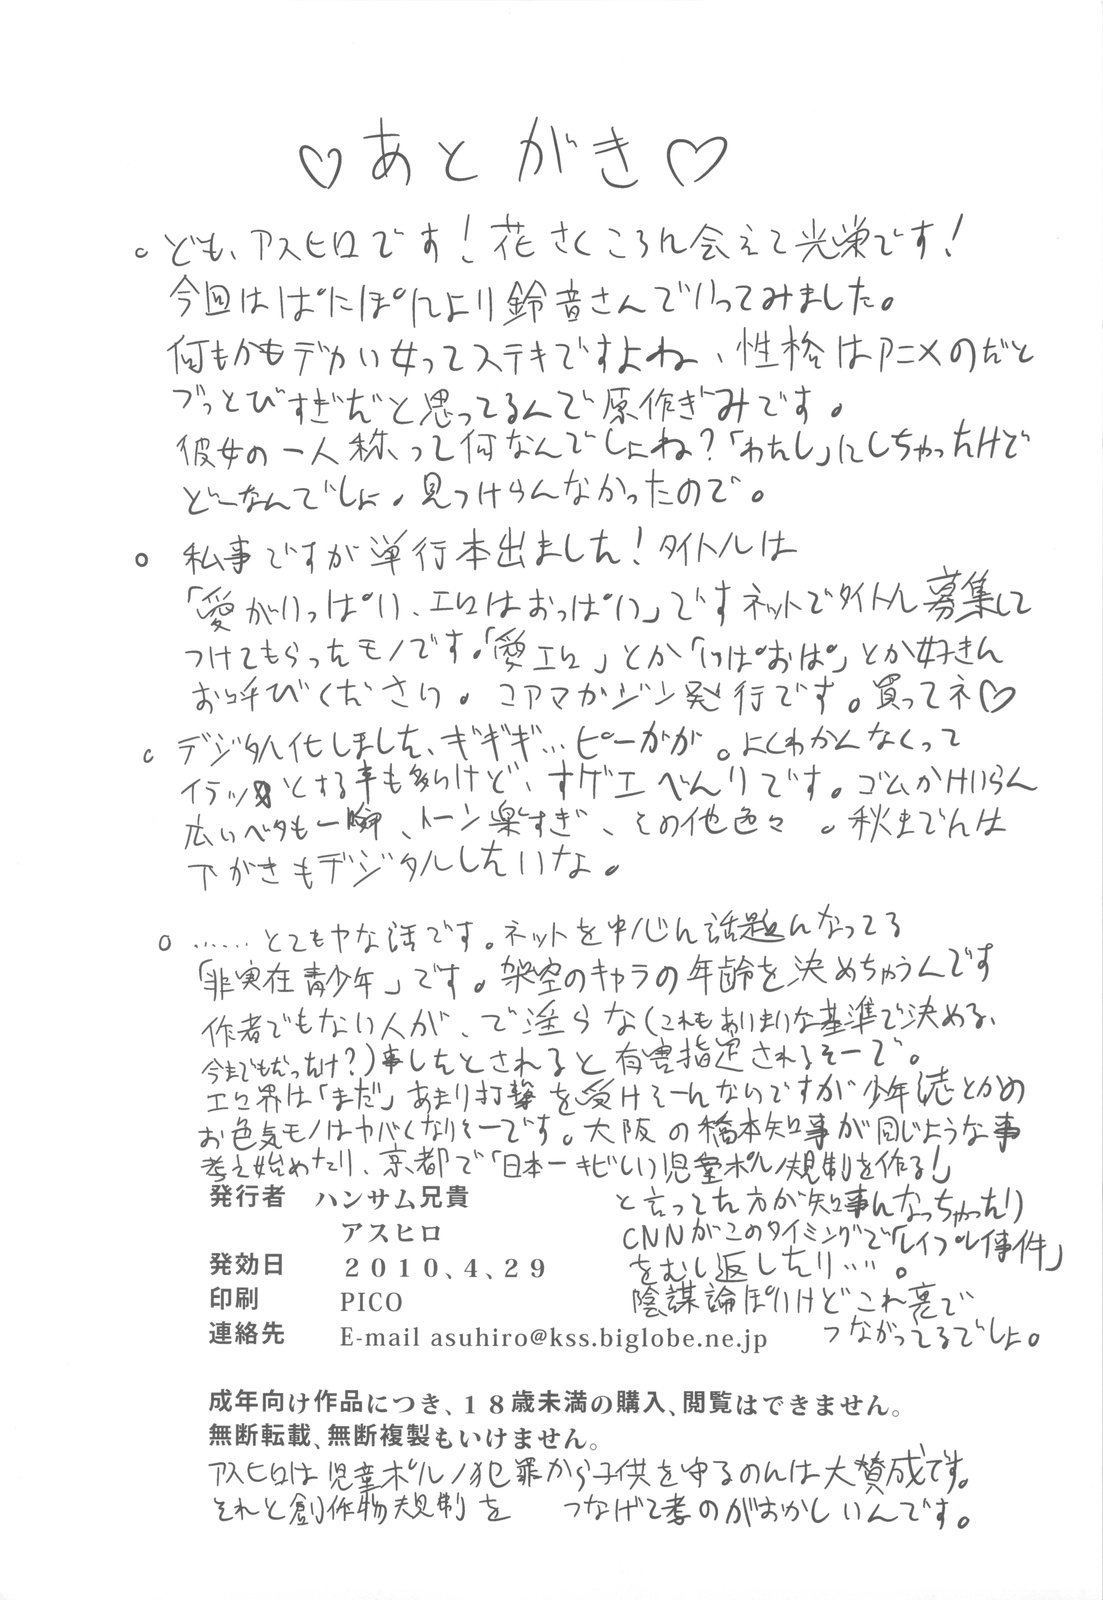 ♡あとがき♡
○ども、アスヒロです！花さくころに会えて光栄です！
今回はぱにぽにより鈴音さんでいってみました。
何もかもデカい女ってステキですよね、性格はアニメのだと
ブっとびすぎだと思ってるんで原作ぎみです。
彼女の一人称って何なんでしょね？「わたし」にしちゃったけど
どーなんでしょ。見つけらんなかったので。
○私事ですが単行本出ました！タイトルは
「愛がいっぱい、エロはおっぱい」ですネットでタイトル募集して
つけてもらったモノです。「愛エロ」とか「いぱおぱ」とか好きに
お呼びください。コアマガジン発行です。買ってネ♡
○デジタル化しました、ギギギ…ピーガガ。よくわかんなくって
イラッとする事も多いけど、すゲエべんりです。ゴムかけいらん
広いベタも一瞬、トーン楽すぎ、その他色々。秋までには
下がきもデジタルしたいな。
○……とてもヤな話です。ネットを中心に話題になってる
「非実在青少年」です。架空のキャラの年齢を決めちゃうんです
作者でもない人が、で淫らな(これもあいまいな基準で決める、
今までもだっけ？)事したとされると有害指定されるそーで。
エロ界は「まだ」あまり打撃を受けそーにないのですが少年誌とかの
お色気モノはヤバくなりそーです。大阪の橋本知事が同じような事
考え始めたり、京都で「日本一キビしい児童ポルノ規制を作る！」
と言ってた方が知事になっちゃったり
CNNがこのタイミングで「レイプレイ事件」
をむし返したり…。
陰謀論ぽいけどこれ裏で
つながってるでしょ。
発行者　ハンサム兄貴
アスヒロ
発効日　２０１０、４、２９
印刷　PICO
連絡先　E-mail asuhiro@kss.biglobe.ne.jp
成年向け作品につき、１８歳未満の購入、閲覧はできません。
無断転載、無断複製もいけません。
アスヒロは児童ポルノ犯罪から子供を守るのには大賛成です。
それと創作物規制を　つなげて考のがおかしいんです。